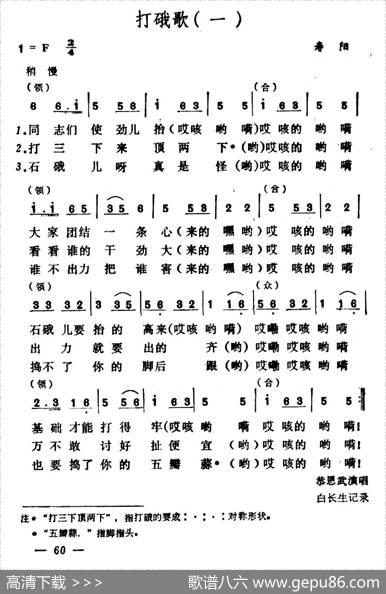 打硪歌(一)
1=F 2/4 寿阳
稍慢
(领) (合)
6 6.i | 5 56 | i 63 | 5 5 | i 63 | 5 5
1.同志们 使劲儿 抬(哎咳 哟 嗬)哎咳的 哟 嗬
2.打 三 下 来 顶 两 下*(哟)哎 咳的 哟 嗬
3.石 硪 儿 呀 真 是 怪(哟)哎 咳的 哟 嗬
(领) (合)
大家团结 一 条 心(来的 嘿哟)哎 咳的 哟嗬
看看谁的 干 劲 大(来的 嘿哟)哎 咳的 哟嗬
谁不出力 把 谁 害(来的 嘿哟)哎 咳的 哟嗬
(领) (众)
石硪儿要 抬的 高来(哎咳 哟 嗬) 哎嘞 哎咳哟 嗬
出 力 就要 出的 齐(哟)哎嘞 哎咳哟 嗬
捣不了 你的 脚后 跟(哟)哎嘞 哎咳哟 嗬
(领) (合)
基础 才能 打得 牢(哎咳 哟 嗬 哎咳的 哟 嗬!
万不敢 讨好 扯便 宜(哟)哎咳的 哟 嗬!
也要捣了你的 五瓣 蒜*(哟)哎咳的 哟 嗬!
恭恩武演唱
白长生记录
注*“打三下顶两下”，指打硪的要成∶·∶·∶对称形状。
*“五瓣蒜，”指脚指头。
— 60 —
高清下载 >>>> 歌谱八六 www.gepu86.com